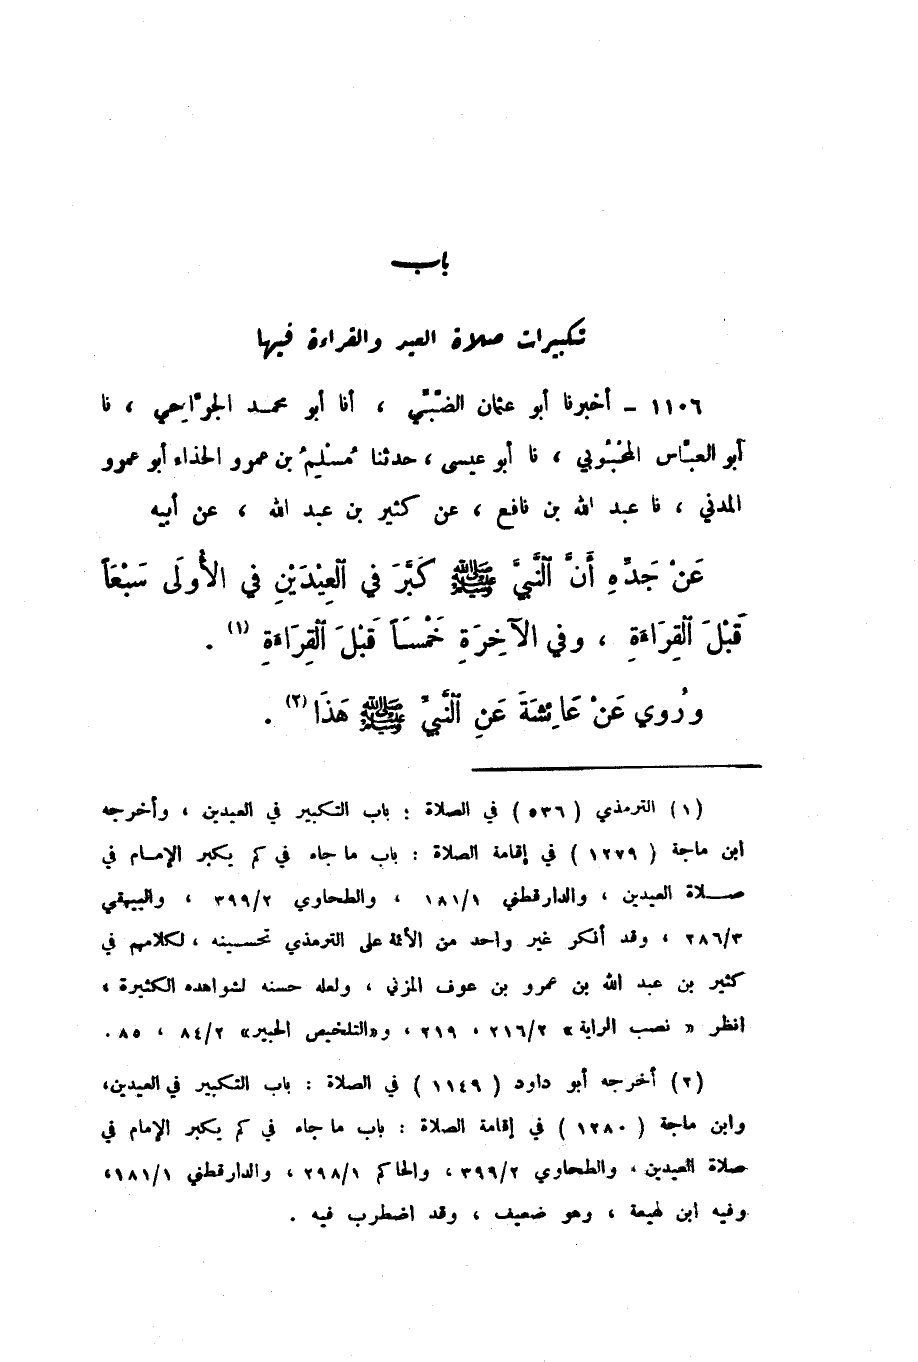 باب
تكبيرات صلاة العيد والقراءة فيها
١١٠٦ - أخبرنا أبو عثمان الضَّبِّي ، أنا أبو محمد الجرَّاحي ، نا
أبو العبَّاس المحْبُوبي ، نا أبو عيسى ، حدثنا مُسْلِمُ بن عمرو الحذاء أبو عمرو
المدني ، نا عبد الله بن نافع ، عن كثير بن عبد الله ، عن أبيه
عَنْ جَدِّهِ أَنَّ النَّبيَّ ﷺ كَبَّرَ في العِيْدَيْنِ في الأُولَى سَبْعَاً
قَبْلَ القِرَاءَةِ ، وفي الآخِرَةِ خَمْسَاً قَبْلَ القِرَاءَةِ (١) .
ورُوي عَنْ عَائِشَةَ عَنِ النَّبيِّ ﷺ هَذَا (٢) .
(١) الترمذي ( ٥٣٦ ) في الصلاة : باب التكبير في العيدين ، وأخرجه
ابن ماجة ( ١٢٧٩ ) في إقامة الصلاة : باب ما جاء في كم يكبر الإمام في
صلاة العيدين ، والدارقطني ١٨١/١ ، والطحاوي ٣٩٩/٢ ، والبيهقي
٢٨٦/٣ ، وقد أنكر غير واحد من الأئمة على الترمذي تحسينه ، لكلامهم في
كثير بن عبد الله بن عمرو بن عوف المزني ، ولعله حسنه لشواهده الكثيرة ،
انظر « نصب الراية » ٢١٦/٢ ، ٢١٩ ، و«التلخيص الحبير» ٨٤/٢ ، ٨٥ .
(٢) أخرجه أبو داود ( ١١٤٩ ) في الصلاة : باب التكبير في العيدين،
وابن ماجة ( ١٢٨٠ ) في إقامة الصلاة : باب ما جاء في كم يكبر الإمام في
صلاة العيدين ، والطحاوي ٣٩٩/٢ ، والحاكم ٢٩٨/١ ، والدارقطني ١٨١/١،
وفيه ابن لهيعة ، وهو ضعيف ، وقد اضطرب فيه .